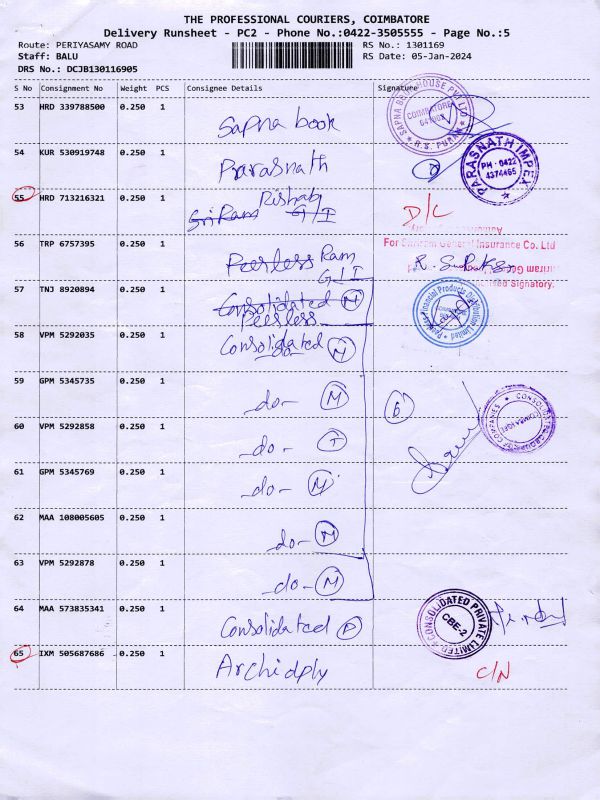 THE PROFESSIONAL COURIERS, COIMBATORE
Delivery Runsheet - PC2 - Phone No.:0422-3505555 - Page No.:5
Route: PERIYASAMY ROAD RS No.: 1301169
Staff: BALU RS Date: 05-Jan-2024
DRS No.: DCJB130116905
S No Consignment No Weight PCS Consignee Details Signature
53 HRD 339788500 0.250 1 Sapna book
SAPNA BOOK HOUSE PVT LTD COIMBATORE R.S. PURAM
54 KUR 530919748 0.250 1 Parasnath
PARASNATH IMPEX PH - 0422 4374465
55 HRD 713216321 1 Rishab D/C
Sri Ram G I I
56 TRP 6757395 0.250 1 Peerless Ram
G I I
For Shriram General Insurance Co. Ltd
Authorised Signatory.
57 TNJ 8920894 0.250 1 Consolidated M
Peerless
58 VPM 5292035 0.250 1 Consolidated M
-do-
59 GPM 5345735 0.250 1 -do- M 6
CONSOLIDATED GROUP OF COMPANIES
60 VPM 5292858 0.250 1 -do- T
61 GPM 5345769 0.250 1 -do- M
62 MAA 108005605 0.250 1 -do- M
63 VPM 5292878 0.250 1 -do- M
64 MAA 573835341 0.250 1 Consolidated P
CONSOLIDATED PRIVATE LIMITED CBE-2
65 IXM 505687686 0.250 1 Archidply C/N